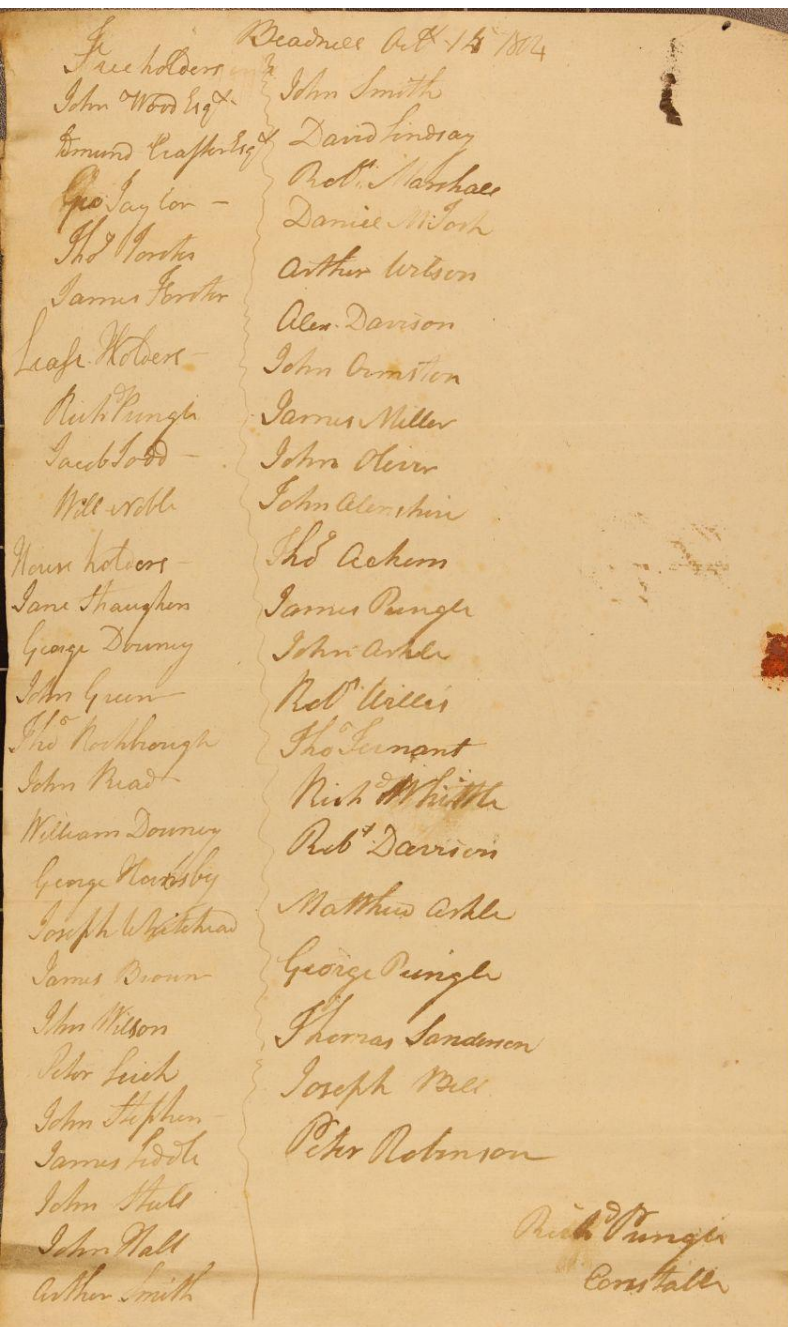 Beadnell Octr 15 1804
Freeholders
John Wood Esqr
Edmund Craster Esqr
Geo Taylor -
Thos Forster
James Forster
Lease Holders -
Richd Pringle
Jacob Todd -
Will Noble
House holders -
Jane Straughen
George Downey
John Green
Thos Rochbrough
John Read
William Downey
George Hornsby
Joseph Whitehead
James Brown
John Wilson
Peter Leich
John Stephen
James Liddle
John Hall
Arthur Smith
John Smith
David Lindsay
Robt Marshall
Daniel McIosh
Arthur Wilson
Alex. Davison
John Ormston
James Miller
John Oliver
John
Thos Aekem
James Pringle
John Arkle
Robt Willis
Thos Tennant
Richd Whittle
Robt Davison
Matthew Arkle
George Pringle
Thomas Sanderson
Joseph Bell
Peter Robinson
Richd Pringle
Constable